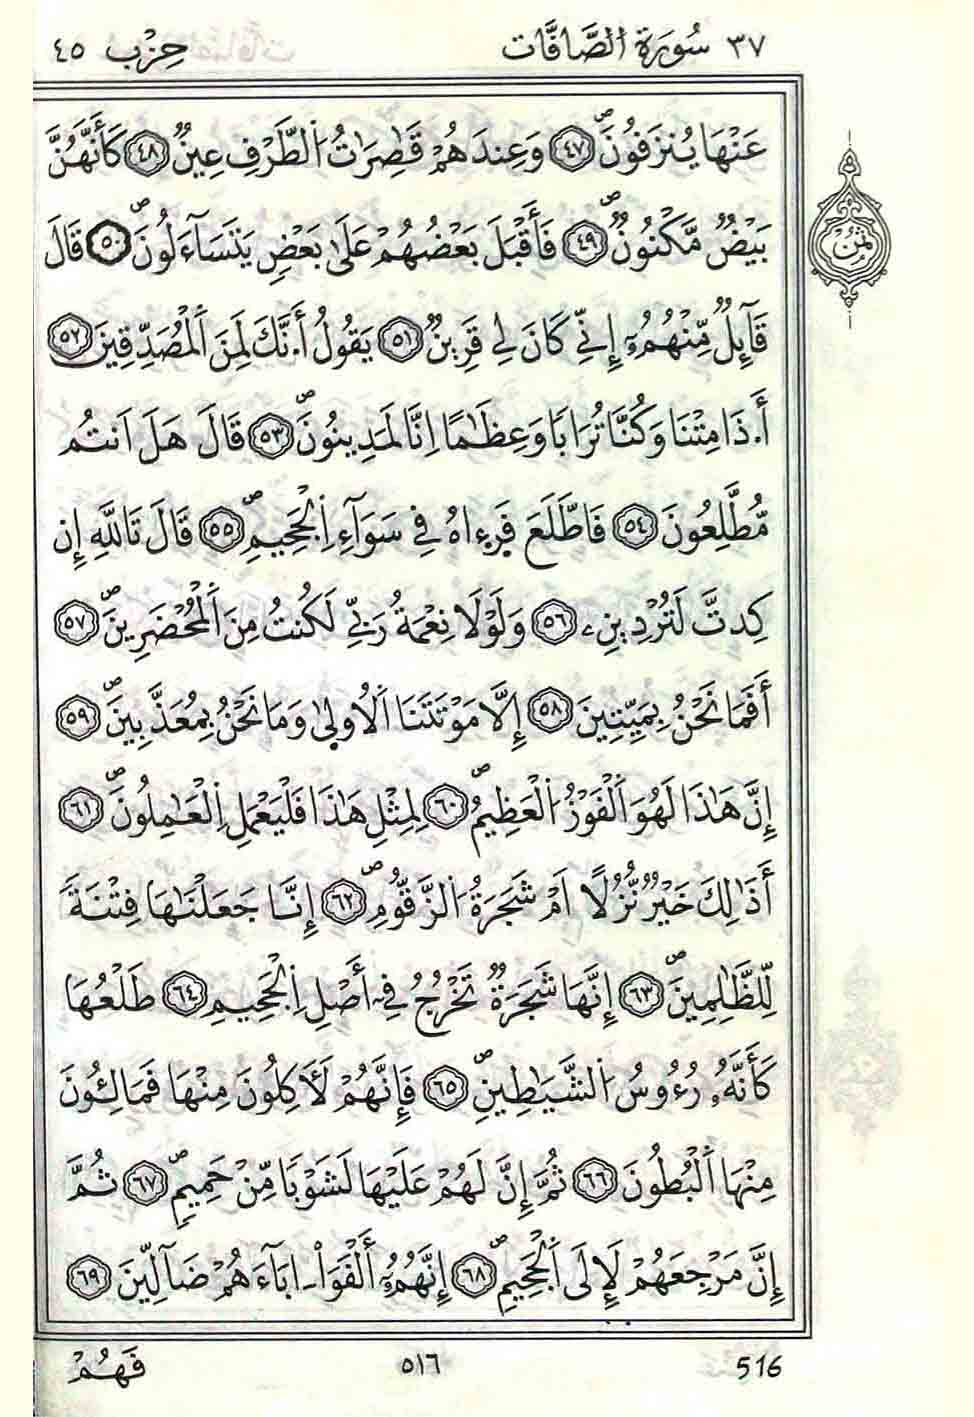 ٣٧ سُورَةُ الصَّافَّات حِزْب ٤٥
عَنْهَا يُنزَفُونَۖ ٤٧ وَعِندَهُمْ قَٰصِرَٰتُ اُ۬لطَّرْفِ عِينٞ ٤٨ كَأَنَّهُنَّ
بَيْضٞ مَّكْنُونٞۖ ٤٩ فَأَقْبَلَ بَعْضُهُمْ عَلَىٰ بَعْضٖ يَتَسَآءَلُونَۖ ٥٠ قَالَ
ثُمُن
قَآئِلٞ مِّنْهُمُۥٓ إِنِّے كَانَ لِے قَرِينٞ ٥١ يَقُولُ أَ.نَّكَ لَمِنَ اَ۬لْمُصَدِّقِينَ ٥٢
أَ.ذَا مِتْنَا وَكُنَّا تُرَاباٗ وَعِظَٰماً اِنَّا لَمَدِينُونَۖ ٥٣ قَالَ هَلَ اَنتُم
مُّطَّلِعُونَ ٥٤ فَاطَّلَعَ فَرِءَاهُ فِے سَوَآءِ اِ۬لْجَحِيمِۖ ٥٥ قَالَ تَاللَّهِ إِن
كِدتَّ لَتُرْدِينِۦ ٥٦ وَلَوْلَا نِعْمَةُ رَبِّے لَكُنتُ مِنَ اَ۬لْمُحْضَرِينَۖ ٥٧
أَفَمَا نَحْنُ بِمَيِّتِينَ ٥٨ إِلَّا مَوْتَتَنَا اَ۬لُاولۭيٰ وَمَا نَحْنُ بِمُعَذَّبِينَۖ ٥٩
إِنَّ هَٰذَا لَهُوَ اَ۬لْفَوْزُ اُ۬لْعَظِيمُۖ ٦٠ لِمِثْلِ هَٰذَا فَلْيَعْمَلِ اِ۬لْعَٰمِلُونَۖ ٦١
أَذَٰلِكَ خَيْرٞ نُّزُلاً اَمْ شَجَرَةُ اُ۬لزَّقُّومِۖ ٦٢ إِنَّا جَعَلْنَٰهَا فِتْنَةٗ
لِّلظَّٰلِمِينَۖ ٦٣ إِنَّهَا شَجَرَةٞ تَخْرُجُ فِےٓ أَصْلِ اِ۬لْجَحِيمِ ٦٤ طَلْعُهَا
كَأَنَّهُۥ رُءُوسُ اُ۬لشَّيَٰطِينِۖ ٦٥ فَإِنَّهُمْ لَأٓكِلُونَ مِنْهَا فَمَالِـُٔونَ
مِنْهَا اَ۬لْبُطُونَ ٦٦ ثُمَّ إِنَّ لَهُمْ عَلَيْهَا لَشَوْباٗ مِّنْ حَمِيمٖۖ ٦٧ ثُمَّ
إِنَّ مَرْجِعَهُمْ لَإِلَى اَ۬لْجَحِيمِۖ ٦٨ إِنَّهُمُۥٓ أَلْفَوَاْ ـ ابَآءَهُمْ ضَآلِّينَ ٦٩
516 ٥١٦ فَهُمْ